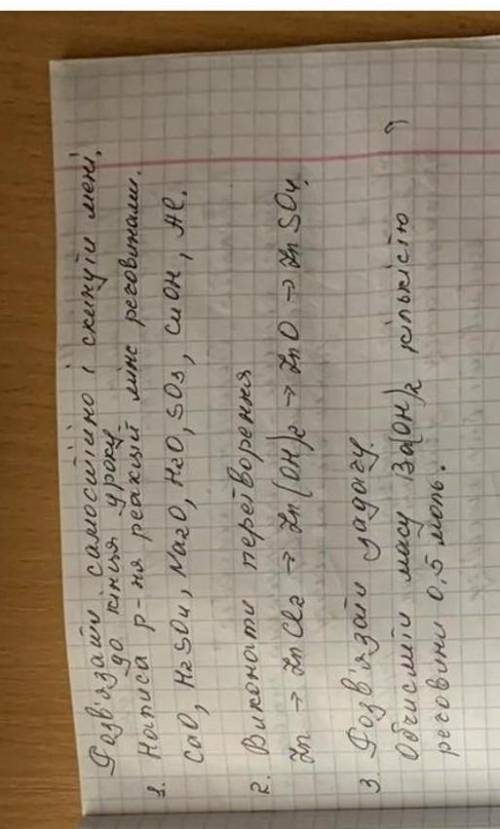 Розв'язати самостійно і скинути мені,
до кінця уроку
1. Написа р-ня реакцій між речовинами.
CaO, H2SO4, Na2O, H2O, SO3, CuOH, Al.
2. Виконати перетворення
Zn → ZnCl2 → Zn(OH)2 → ZnO → ZnSO4.
3. Розв'язати задачу.
Обчислити масу Ba(OH)2 кількістю
речовини 0,5 моль.